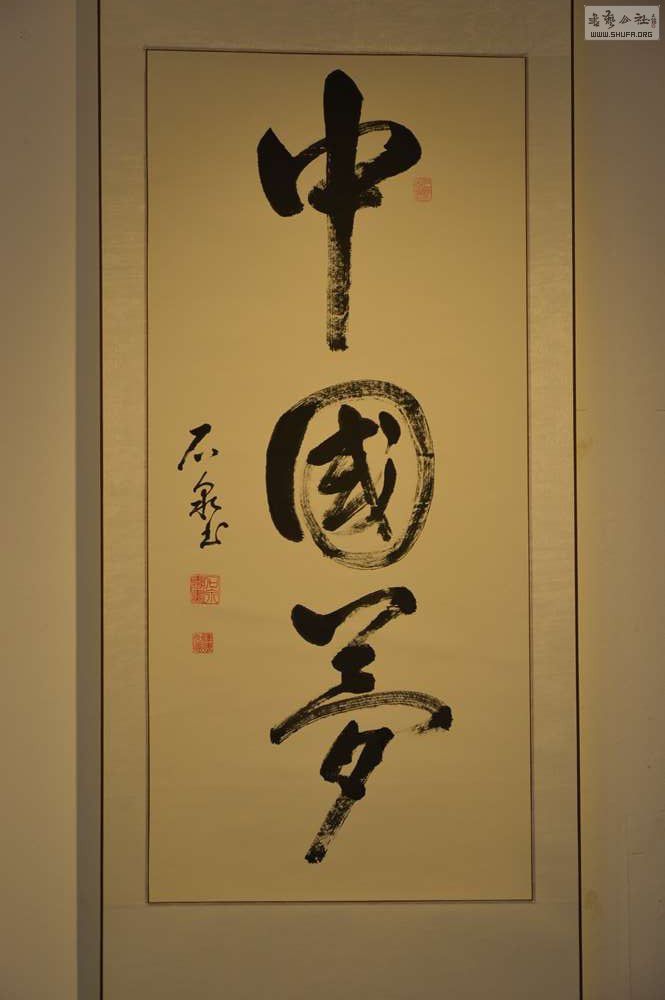 中國夢
石泉书
书艺公社
WWW.SHUFA.ORG